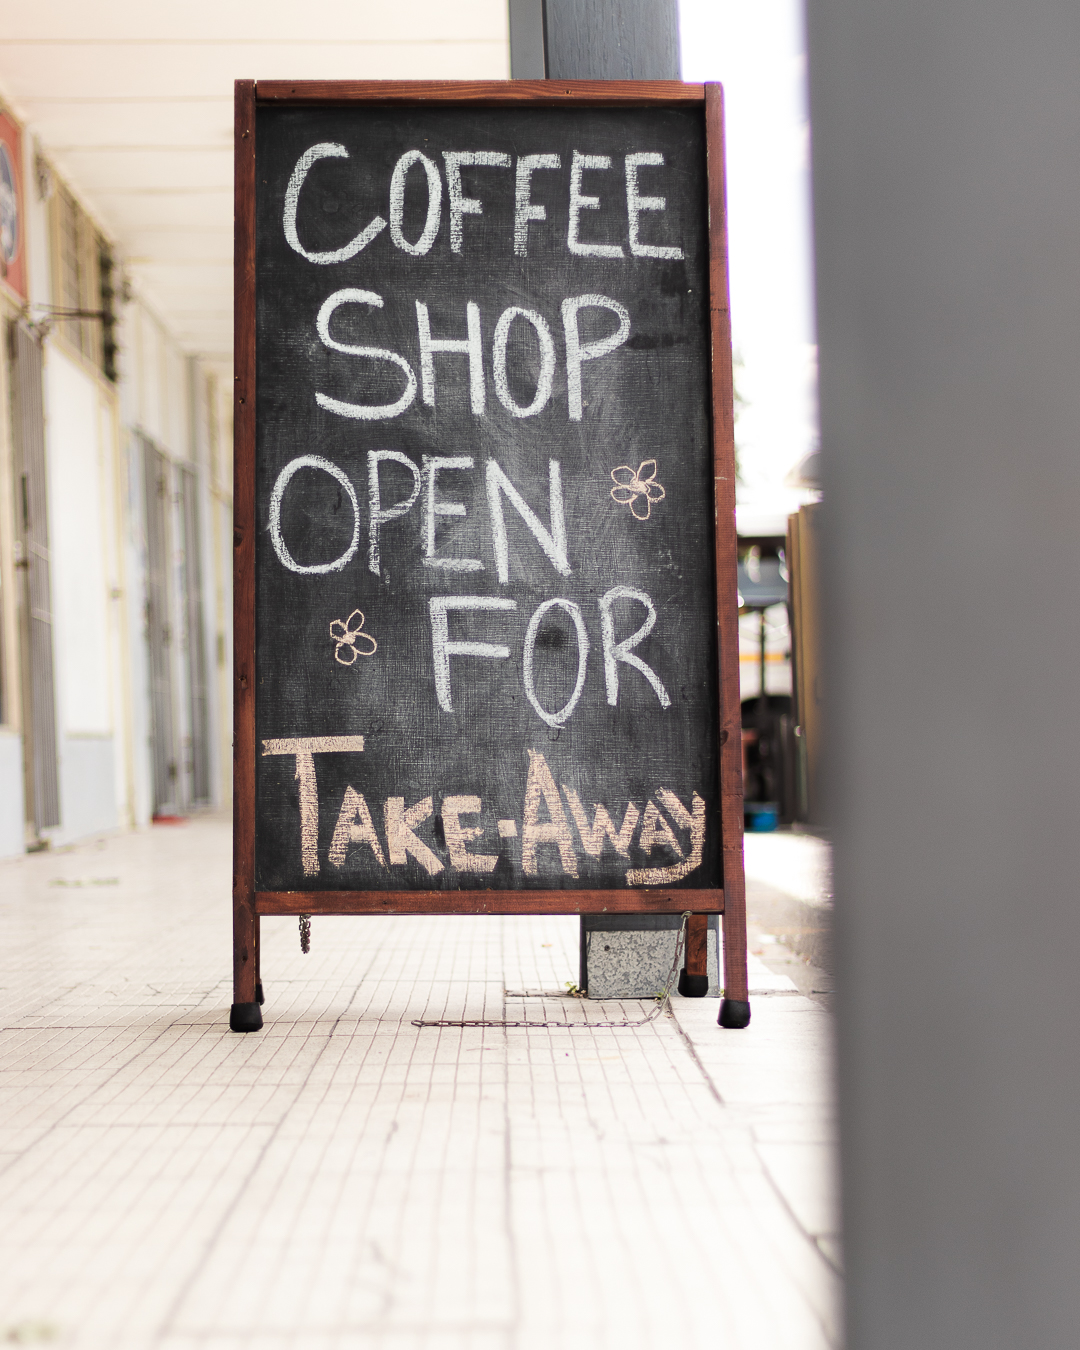 COFFEE
SHOP
OPEN
FOR
TAKE-AWAY